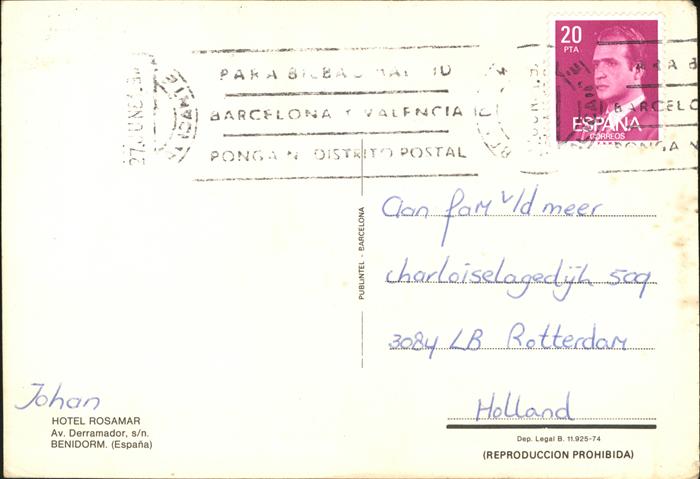 PARA BILBAO MADRID
BARCELONA Y VALENCIA
PONGA N. DISTRITO POSTAL
20
PTA
ESPAÑA
CORREOS
PARA B
BARCELO
PONGA N
Aan fam v/d meer
charloiselagedijk 509
3084 LB Rotterdam
Holland
PUBLINTEL - BARCELONA
Johan
HOTEL ROSAMAR
Av. Derramador, s/n.
BENIDORM. (España)
Dep. Legal B. 11.925-74
(REPRODUCCION PROHIBIDA)